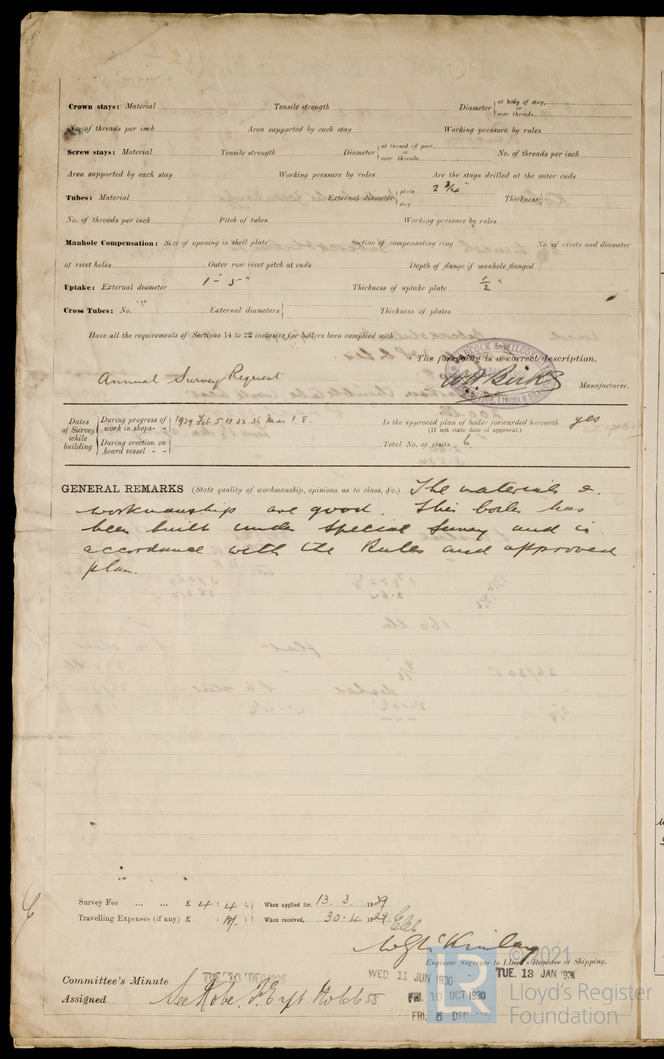 Crown stays: Material Tensile strength Diameter at body of stay, or over threads.
No. of threads per inch Area supported by each stay Working pressure by rules
Screw stays: Material Tensile strength Diameter at turned off part, or over threads. No. of threads per inch
Area supported by each stay Working pressure by rules Are the stays drilled at the outer ends
Tubes: Material External diameter plain stay 2 3/16" Thickness
No. of threads per inch Pitch of tubes Working pressure by rules
Manhole Compensation: Size of opening in shell plate Section of compensating ring No. of rivets and diameter
of rivet holes Outer row rivet pitch at ends Depth of flange if manhole flanged
Uptake: External diameter 1'-5" Thickness of uptake plate 1/2"
Cross Tubes: No. External diameters Thickness of plates
Have all the requirements of Sections 14 to 22 inclusive for boilers been complied with
The foregoing is a correct description,
Annual Survey Request Manufacturer.
Dates of Survey while building During progress of work in shops - - 1929 Feb 5. 19. 22. 26 Mar 1. 8.
During erection on board vessel - -
Is the approved plan of boiler forwarded herewith yes
(If not state date of approval.)
Total No. of visits 6
GENERAL REMARKS (State quality of workmanship, opinions as to class, &c.) The materials &
workmanship are good. This boiler has
been built under Special Survey and in
accordance with the Rules and approved
plan.
Survey Fee ... ... £ 4 : 4 : When applied for, 13. 3. 1929
Travelling Expenses (if any) £ : 10/- : When received, 30.4 1929
Engineer Surveyor to Lloyd's Register of Shipping.
Committee's Minute
WED. 11 JUN 1930 TUE. 13 JAN 1931
FRI. 10 OCT 1930
FRI. 5 DEC
Assigned See Kobe F.E. rpt No
©2021
Lloyd's Register
Foundation